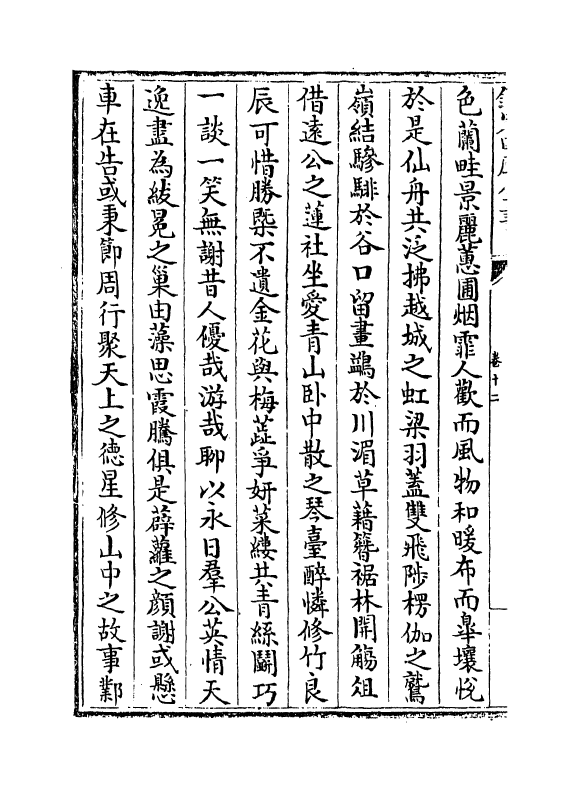 色蘭畦景麗蕙圃烟霏人歡而風物和暖布而皐壤悅
於是仙舟共泛拂越城之虹梁羽蓋雙飛陟楞伽之鷲
嶺結驂騑於谷口留畫鷁於川湄草藉簪裾林開觴俎
借遠公之蓮社坐愛青山卧中散之琴臺醉憐修竹良
辰可惜勝槩不遺金花與梅蕋爭妍菜縷共青絲鬬巧
一談一笑無謝昔人優哉游哉聊以永日羣公英情天
逸盡為紱冕之巢由藻思霞騰俱是薜蘿之顔謝或懸
車在告或秉節周行聚天上之徳星修山中之故事鄴
卷十二